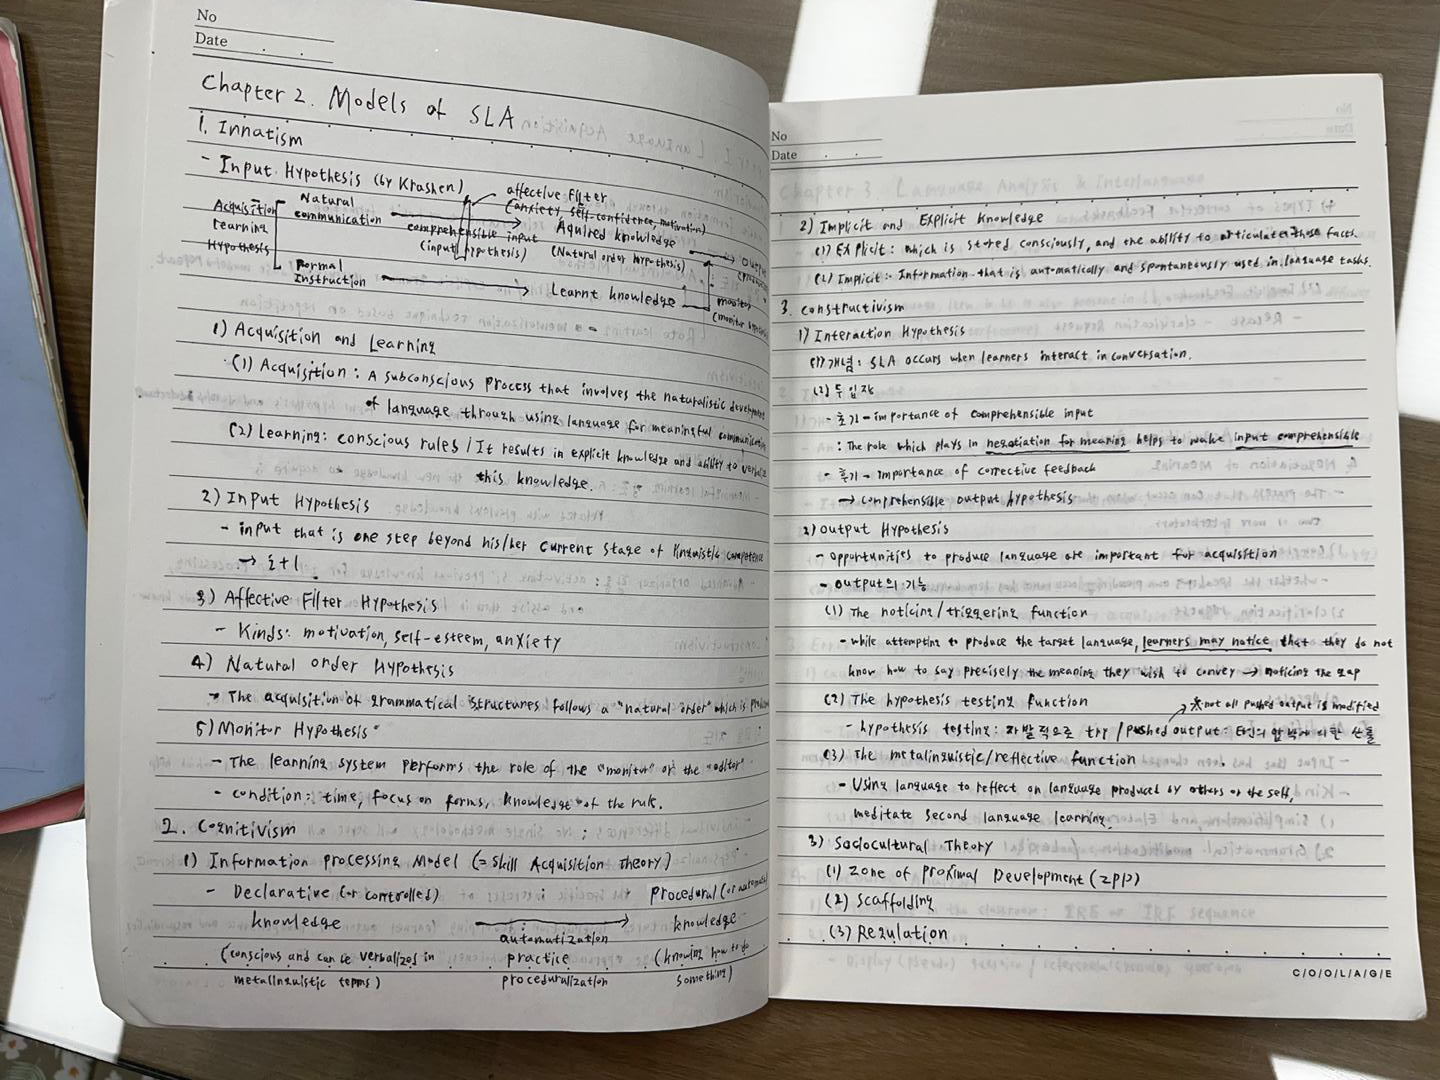 No
Date . .
Chapter 2. Models of SLA
1. Innatism
- Input Hypothesis (by Krashen)
affective filter
(anxiety, self-confidence, motivation)
Acquisition
Learning
Hypothesis
Natural
communication
comprehensible input
(input hypothesis)
Aquired knowledge
(Natural order hypothesis)
output
Formal
Instruction
Learnt knowledge
monitor
(monitor
1) Acquisition and Learning
(1) Acquisition : A subconscious process that involves the naturalistic
of language through using language for meaningful
(2) Learning: conscious rules / It results in explicit knowledge and ability to verbalize
this knowledge.
2) Input Hypothesis
- input that is one step beyond his/her current stage of linguistic competence
→ i+1
3) Affective Filter Hypothesis
- Kinds: motivation, self-esteem, anxiety
4) Natural order Hypothesis
- The acquisition of grammatical structures follows a "natural order" which is
5) Monitor Hypothesis
- The learning system performs the role of the "monitor" or the "editor"
- condition: time, focus on forms, knowledge of the rule.
2. Cognitivism
1) Information processing Model (= Skill Acquisition Theory)
- Declarative (or controlled) procedural (or
knowledge → knowledge
automatization
(conscious and can be verbalized in practice (knowing how to do
metalinguistic terms) proceduralization something)
No
Date . .
2) Implicit and Explicit Knowledge
(1) Explicit: which is stored consciously, and the ability to articulate those facts.
(2) Implicit: Information that is automatically and spontaneously used in language tasks.
3. constructivism
1) Interaction Hypothesis
(1) 개념: SLA occurs when learners interact in conversation.
(2) 두 입장
- 초기 - importance of comprehensible input
: The role which plays in negotiation for meaning helps to make input comprehensible
- 후기 - importance of corrective feedback
→ comprehensible output hypothesis
2) Output Hypothesis
- opportunities to produce language are important for acquisition
- output의 기능
(1) The noticing/triggering function
- while attempting to produce the target language, learners may notice that they do not
know how to say precisely the meaning they wish to convey → noticing the gap
(2) The hypothesis testing function
※ not all pushed output is modified
- hypothesis testing: 자발적으로 try / pushed output: 타인의 압박에 의한 산출
(3) The metalinguistic/reflective function
- Using language to reflect on language produced by others or the self,
meditate second language learning.
3) Sociocultural Theory
(1) Zone of Proximal Development (ZPD)
(2) Scaffolding
(3) Regulation
C/O/O/L/A/G/E